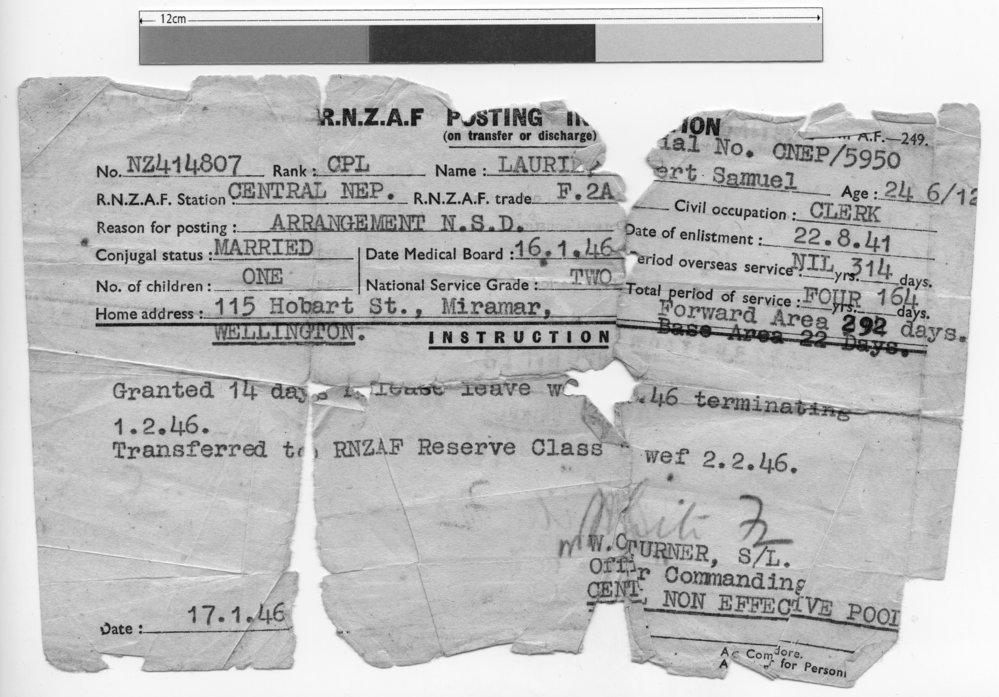 12cm
R.N.Z.A.F POSTING IN TION A.F.—249.
(on transfer or discharge) ial No. CNEP/5950
No. NZ414807 Rank : CPL Name : LAURI ert Samuel Age : 24 6/12
R.N.Z.A.F. Station CENTRAL NEP. R.N.Z.A.F. trade F.2A Civil occupation : CLERK
Reason for posting : ARRANGEMENT N.S.D. Date of enlistment : 22.8.41
Conjugal status : MARRIED Date Medical Board : 16.1.46 eriod overseas service NIL yrs. 314 days.
No. of children : ONE National Service Grade : TWO Total period of service : FOUR yrs. 164 days.
Home address : 115 Hobart St., Miramar, Forward Area 292 days.
WELLINGTON. INSTRUCTION Base Area 22 Days.
Granted 14 days leave .46 terminating
1.2.46.
Transferred to RNZAF Reserve Class wef 2.2.46.
TURNER, S/L.
Commanding
CENT. NON EFFECTIVE POOL
Date : 17.1.46
for Personn